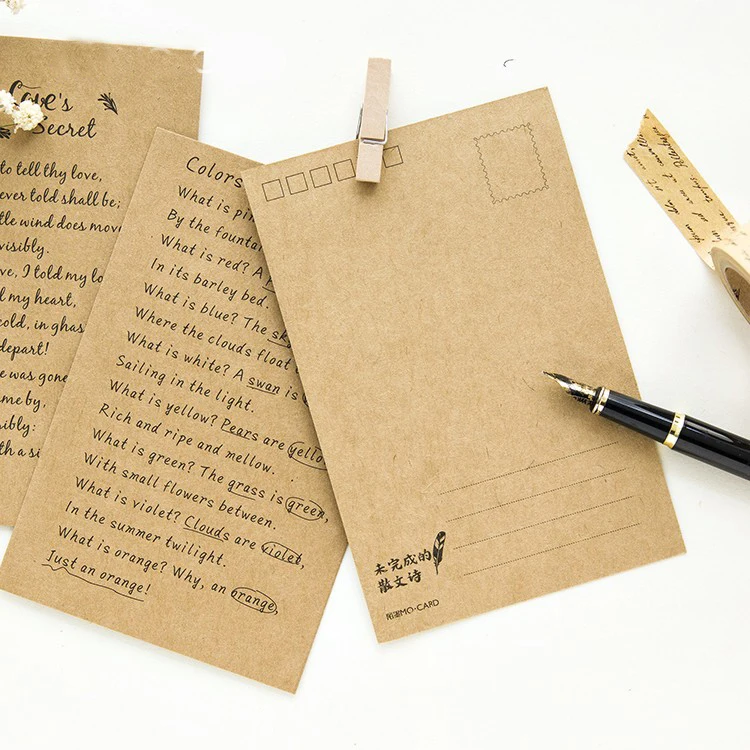 Love's
Secret
to tell thy love,
ever told shall be;
tle wind does mov
visibly.
ve, I told my lo
d my heart,
cold, in ghas
depart!
e was gone
me by,
sibly:
th a si
Colors
What is pin
By the fountai
What is red? A
In its barley bed.
What is blue? The sk
Where the clouds float
What is white? A swan is
Sailing in the light.
What is yellow? Pears are yello
Rich and ripe and mellow.
What is green? The grass is green,
With small flowers between.
What is violet? Clouds are violet,
In the summer twilight.
What is orange? Why, an orange,
Just an orange!
未完成的
散文诗
陌墨MO·CARD